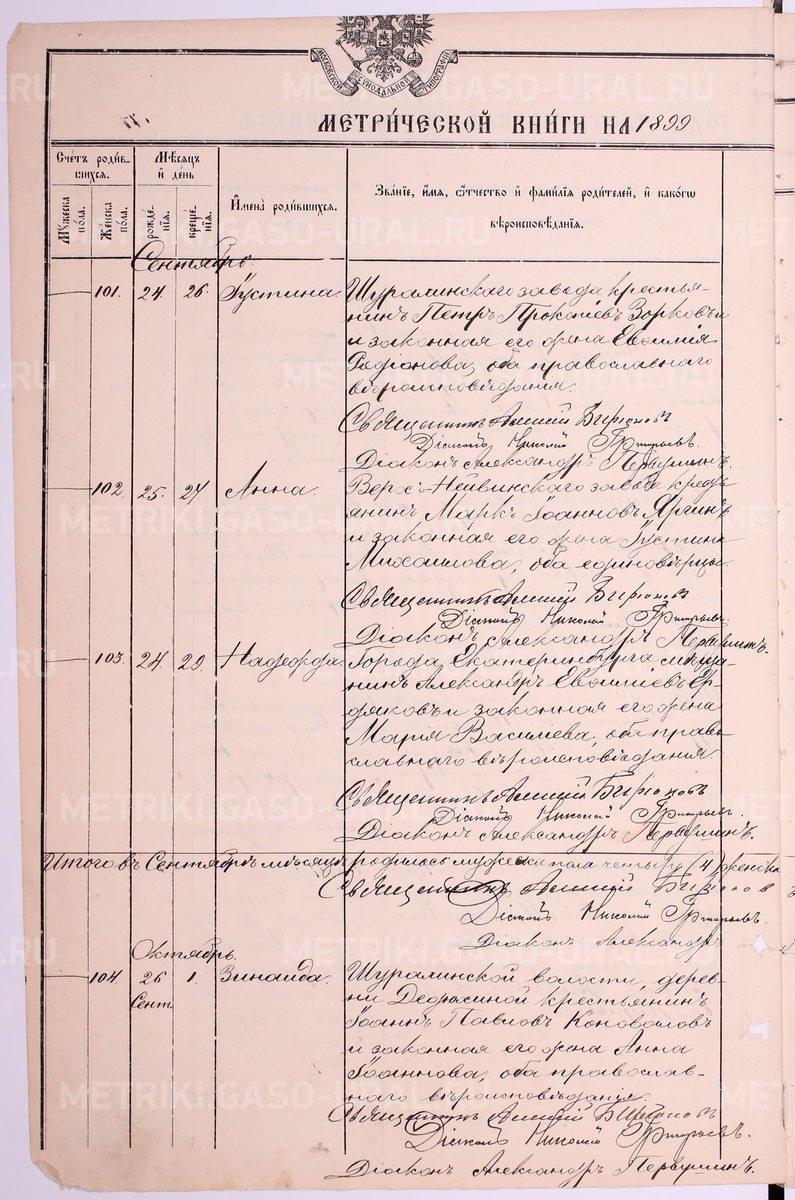 МОСКОВСКОЙ СѴНОДАЛЬНОЙ ТИПОГРАФІИ
МЕТРИ́ЧЕСКОЙ КНИ́ГИ НА 1899
Сче́тъ роди́в-
шихся.
Мѣсяцъ
и день
Имена̀ роди́вшихся.
Зва́нїе, и́мя, ѻ҆́тчество и фами́лїя роди́телей, и како́гѡ
вѣроисповѣ́данїя.
Му́жеска
пола.
Же́нска
пола.
рожде́-
нїя.
креще́-
нїя.
Сентябрь.
101. 24. 26. Іустина. Шуралинскаго завода крестья-
нинъ Петръ Прокопіевъ Зорковъ и
и законная его жена Евѳимія
Родіонова, оба православнаго
вѣроисповѣданія.
Священникъ Алексій Бирюковъ
Діаконъ Николай Григорьевъ.
Діаконъ Александръ Первушинъ.
102. 25. 27. Анна. Верхъ-Нейвинскаго завода кресть-
янинъ Маркъ Іоанновъ Яргинъ
и законная его жена Іустина
Михаилова, оба единовѣрцы.
Священникъ Алексій Бирюковъ
Діаконъ Николай Григорьевъ.
Діаконъ Александръ Первушинъ.
103. 24. 29. Надежда. Города Екатеринбурга мѣща-
нинъ Александръ Евѳиміевъ Ер-
дяковъ и законная его жена
Марія Василіева, оба право-
славнаго вѣроисповѣданія.
Священникъ Алексій Бирюковъ
Діаконъ Николай Григорьевъ.
Діаконъ Александръ Первушинъ.
Итого въ Сентябрѣ мѣсяцѣ родилось мужеска пола четыре (4) женска
Священникъ Алексій Бирюковъ
Діаконъ Николай Григорьевъ.
Діаконъ Александръ
Октябрь.
104. 26 1. Зинаида. Шуралинской волости, дерев-
Сент. ни Дедюхиной крестьянинъ
Іоаннъ Павловъ Коноваловъ
и законная его жена Анна
Іоаннова, оба православ-
наго вѣроисповѣданія.
Священникъ Алексій Бирюковъ
Діаконъ Николай Григорьевъ.
Діаконъ Александръ Первушинъ.
METRIKI.GASO-URAL.RU